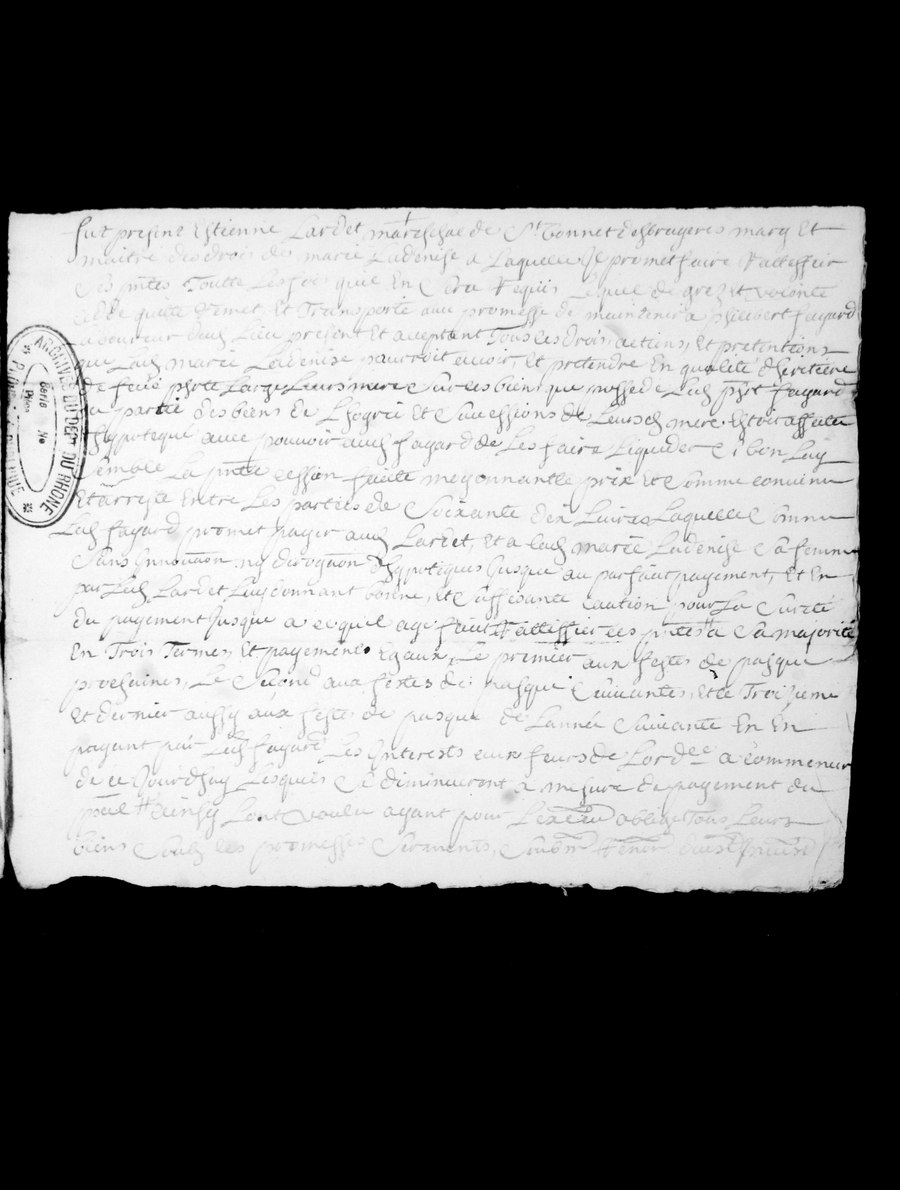 fut present Estienne Lardet mareschal de St Bonnet des bruyeres mary et
maitre des drois de marie Ladenise a Laquelle Il promet faire Rattiffier
Ces pntes Toutte Les fois quil En Sera Requis Lequel de gré et volonté
cedde quitte Remet et Transporte avec promesse de maintenir a philibert fayard
Laboureur dud Lieu present et aceptant Tous les drois, actions, et pretentions
que Lad marie Ladenise pourroit avoir, et pretendre En qualité dheritiere
de feüe Leurs mere Sur les biens que possede Led phrt fayard
partie des biens de Et Successions de Leursd mere Estoit affecté
hypotequé avec pouvoir aud fayard de Les faire Liquider Si bon Luy
Semble La pnte cession faitte moyennant le prix et Somme convenu
Et arresté Entre Les parties de Soixante dix Livres Laquelle Somme
Led fayard promet payer aud Lardet, et a lad marie Ladenise Sa femme
Sans Innovaõn ny derogaõn dhypoteques Jusque au parfait payement, et En
par Led Lardet Luy donnant bonne, et Suffisante Caution pour La Sureté
du payement Jusque a ce qu'il aye faict Rattiffier ces pntes a Sa majorité
En Trois Termes et payements Egaux, Le premier aux festes de pasque
prochaines, Le Second aux festes de pasque Suivantes, et le Troizieme
et dernier aussy aux festes de pasque de Lannée Suivante En En
payant par Led fayard Les Interests au feurs de Lordce a commencer
de ce Jourdhuy Lesquels Se diminueront a mesure de payement du
ppal Ainsy Lont voulu ayant pour Lexeeõn obligé Tous Leurs
biens Soubs les promesses Serments, Soubmõn Renõn